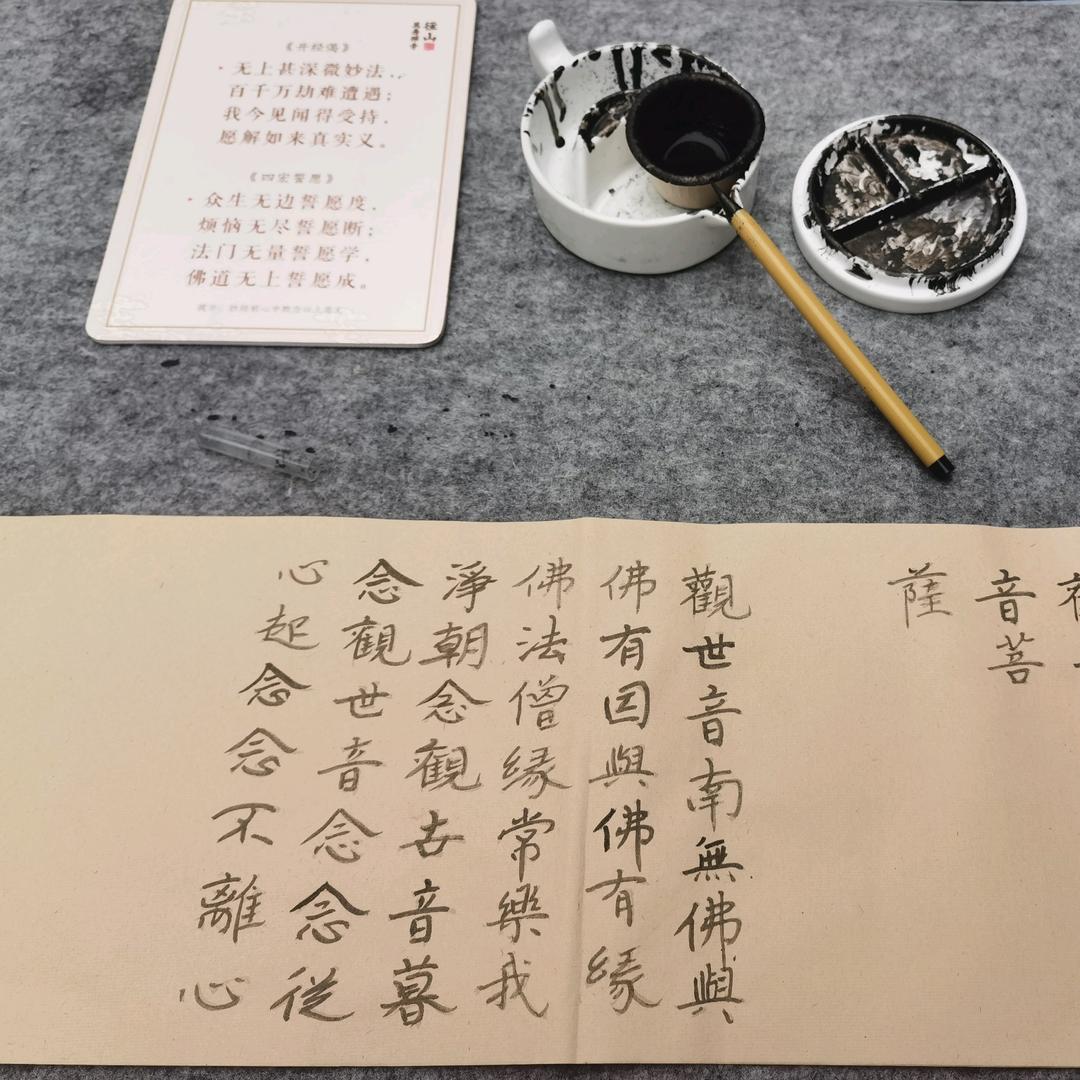 徑山
萬壽禪寺
《开经偈》
无上甚深微妙法，
百千万劫难遭遇；
我今见闻得受持，
愿解如来真实义。
《四宏誓愿》
众生无边誓愿度，
烦恼无尽誓愿断；
法门无量誓愿学，
佛道无上誓愿成。
音菩
薩
觀世音南無佛與
佛有因與佛有緣
佛法僧緣常樂我
淨朝念觀世音暮
念觀世音念念從
心起念念不離心